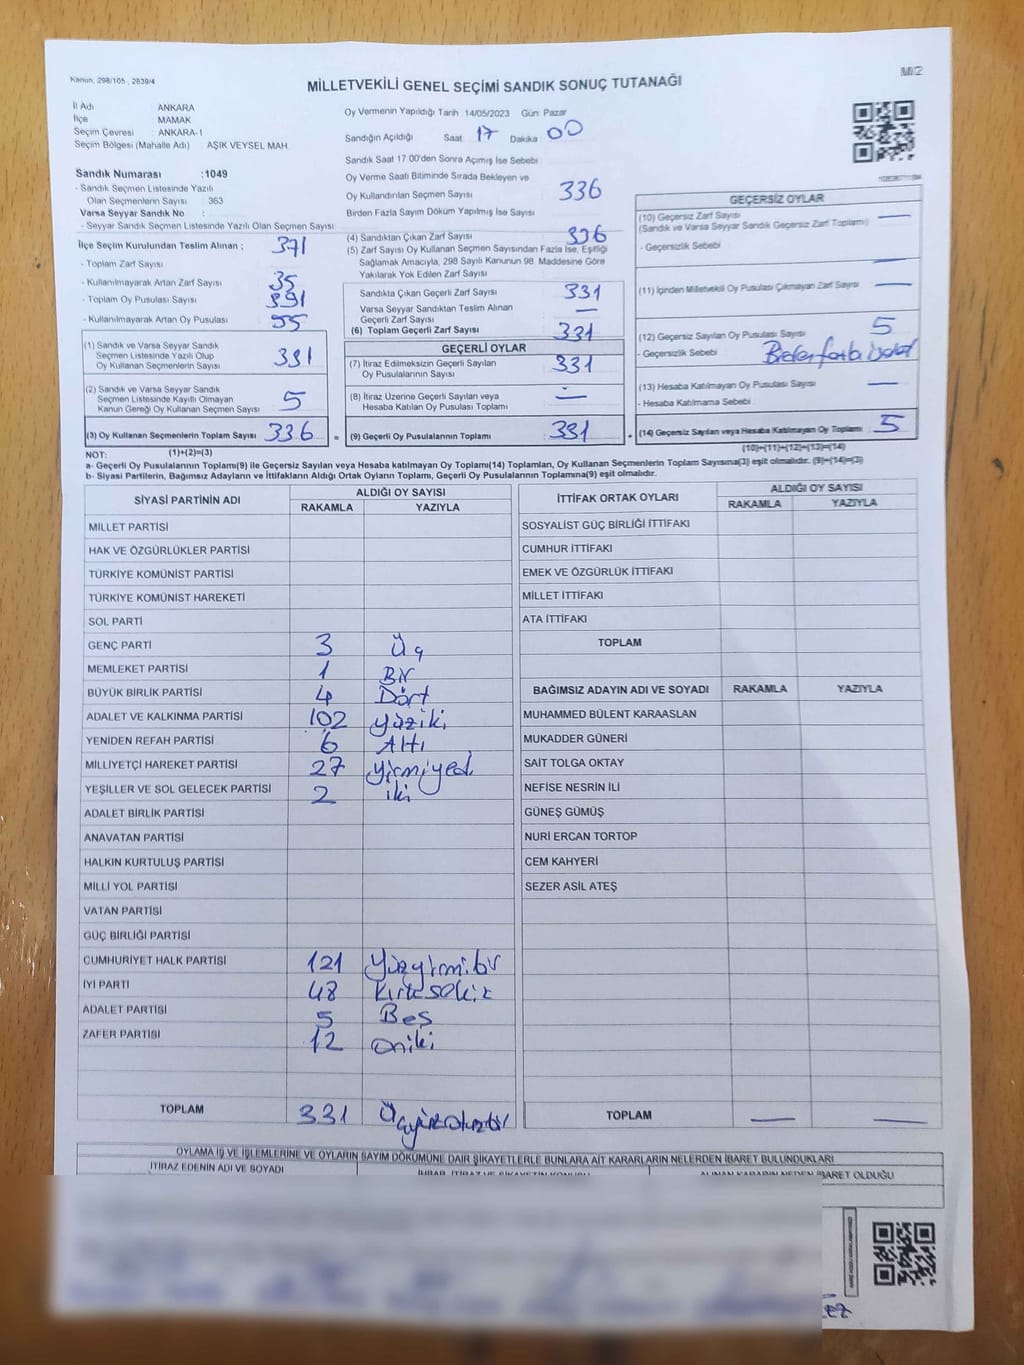 Kanun, 298/105 , 2839/4
MİLLETVEKİLİ GENEL SEÇİMİ SANDIK SONUÇ TUTANAĞI
M/2
İl Adı : ANKARA
İlçe : MAMAK
Seçim Çevresi : ANKARA-1
Seçim Bölgesi (Mahalle Adı) : AŞIK VEYSEL MAH.
Sandık Numarası :1049
- Sandık Seçmen Listesinde Yazılı
Olan Seçmenlerin Sayısı : 363
Varsa Seyyar Sandık No :
- Seyyar Sandık Seçmen Listesinde Yazılı Olan Seçmen Sayısı
İlçe Seçim Kurulundan Teslim Alınan ;
- Toplam Zarf Sayısı 371
- Kullanılmayarak Artan Zarf Sayısı 35
- Toplam Oy Pusulası Sayısı 391
- Kullanılmayarak Artan Oy Pusulası 55
(1) Sandık ve Varsa Seyyar Sandık
Seçmen Listesinde Yazılı Olup
Oy Kullanan Seçmenlerin Sayısı 331
(2) Sandık ve Varsa Seyyar Sandık
Seçmen Listesinde Kayıtlı Olmayan
Kanun Gereği Oy Kullanan Seçmen Sayısı 5
(3) Oy Kullanan Seçmenlerin Toplam Sayısı 336
(1)+(2)=(3)
Oy Vermenin Yapıldığı Tarih :14/05/2023 Gün: Pazar
Sandığın Açıldığı Saat: 17 Dakika: 00
Sandık Saat 17.00'den Sonra Açımış İse Sebebi :
Oy Verme Saati Bitiminde Sırada Bekleyen ve
Oy Kullandırılan Seçmen Sayısı 336
Birden Fazla Sayım Döküm Yapılmış İse Sayısı
(4) Sandıktan Çıkan Zarf Sayısı 336
(5) Zarf Sayısı Oy Kullanan Seçmen Sayısından Fazla İse, Eşitliği
Sağlamak Amacıyla, 298 Sayılı Kanunun 98. Maddesine Göre
Yakılarak Yok Edilen Zarf Sayısı
Sandıkta Çıkan Geçerli Zarf Sayısı 331
Varsa Seyyar Sandıktan Teslim Alınan
Geçerli Zarf Sayısı —
(6) Toplam Geçerli Zarf Sayısı 331
GEÇERLİ OYLAR
(7) İtiraz Edilmeksizin Geçerli Sayılan
Oy Pusulalarının Sayısı 331
(8) İtiraz Üzerine Geçerli Sayılan veya
Hesaba Katılan Oy Pusulası Toplamı —
= (9) Geçerli Oy Pusulalarının Toplamı 331
GEÇERSİZ OYLAR
(10) Geçersiz Zarf Sayısı —
(Sandık ve Varsa Seyyar Sandık Geçersiz Zarf Toplamı)
- Geçersizlik Sebebi —
(11) İçinden Milletvekili Oy Pusulası Çıkmayan Zarf Sayısı —
(12) Geçersiz Sayılan Oy Pusulası Sayısı 5
- Geçersizlik Sebebi
(13) Hesaba Katılmayan Oy Pusulası Sayısı —
- Hesaba Katılmama Sebebi
+ (14) Geçersiz Sayılan veya Hesaba Katılmayan Oy Toplamı 5
(10)+(11)+(12)+(13)=(14)
NOT:
a- Geçerli Oy Pusulalarının Toplamı(9) ile Geçersiz Sayılan veya Hesaba katılmayan Oy Toplamı(14) Toplamları, Oy Kullanan Seçmenlerin Toplam Sayısına(3) eşit olmalıdır. (9)+(14)=(3)
b- Siyasi Partilerin, Bağımsız Adayların ve İttifakların Aldığı Ortak Oyların Toplamı, Geçerli Oy Pusulalarının Toplamına(9) eşit olmalıdır.
SİYASİ PARTİNİN ADI ALDIĞI OY SAYISI
RAKAMLA YAZIYLA
MİLLET PARTİSİ
HAK VE ÖZGÜRLÜKLER PARTİSİ
TÜRKİYE KOMÜNİST PARTİSİ
TÜRKİYE KOMÜNİST HAREKETİ
SOL PARTİ
GENÇ PARTİ 3 Üç
MEMLEKET PARTİSİ 1 Bir
BÜYÜK BİRLİK PARTİSİ 4 Dört
ADALET VE KALKINMA PARTİSİ 102 Yüziki
YENİDEN REFAH PARTİSİ 6 Altı
MİLLİYETÇİ HAREKET PARTİSİ 27 Yirmiyedi
YEŞİLLER VE SOL GELECEK PARTİSİ 2 iki
ADALET BİRLİK PARTİSİ
ANAVATAN PARTİSİ
HALKIN KURTULUŞ PARTİSİ
MİLLİ YOL PARTİSİ
VATAN PARTİSİ
GÜÇ BİRLİĞİ PARTİSİ
CUMHURİYET HALK PARTİSİ 121 Yüzyirmibir
İYİ PARTİ 48 Kırksekiz
ADALET PARTİSİ 5 Beş
ZAFER PARTİSİ 12 Oniki
TOPLAM 331 Üçyüzotuzbir
İTTİFAK ORTAK OYLARI ALDIĞI OY SAYISI
RAKAMLA YAZIYLA
SOSYALİST GÜÇ BİRLİĞİ İTTİFAKI
CUMHUR İTTİFAKI
EMEK VE ÖZGÜRLÜK İTTİFAKI
MİLLET İTTİFAKI
ATA İTTİFAKI
TOPLAM
BAĞIMSIZ ADAYIN ADI VE SOYADI RAKAMLA YAZIYLA
MUHAMMED BÜLENT KARAASLAN
MUKADDER GÜNERİ
SAİT TOLGA OKTAY
NEFİSE NESRİN İLİ
GÜNEŞ GÜMÜŞ
NURİ ERCAN TORTOP
CEM KAHYERİ
SEZER ASİL ATEŞ
TOPLAM — —
OYLAMA İŞ VE İŞLEMLERİNE VE OYLARIN SAYIM DÖKÜMÜNE DAİR ŞİKAYETLERLE BUNLARA AİT KARARLARIN NELERDEN İBARET BULUNDUKLARI
İTİRAZ EDENİN ADI VE SOYADI
İHBAR, İTİRAZ VE ŞİKAYETİN KONUSU
ALINAN KARARIN NEDEN İBARET OLDUĞU